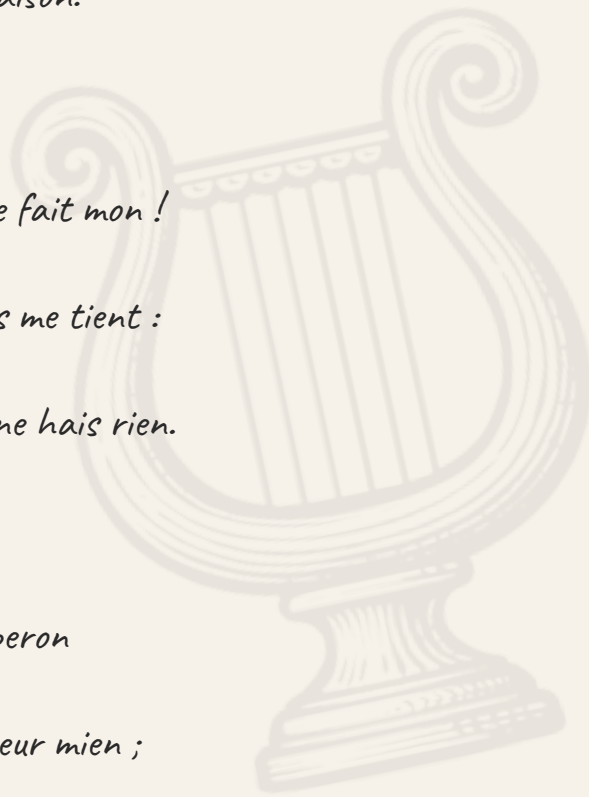 aison.
e fait mon !
s me tient :
ne hais rien.
peron
eur mien ;